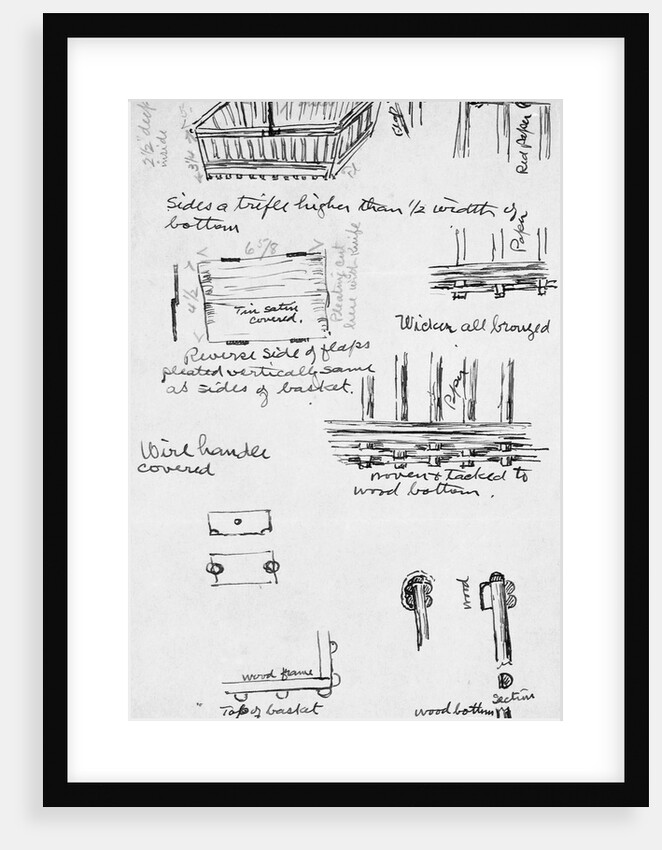 2½" deep
inside
4 3/4
Red Paper
Sides a trifle higher than ½ width of
bottom
Paper
6 5/8
4½
Pleating cut
here with knife
Tin satin
covered.
Wicker all bronzed
Reverse side of flaps
pleated vertically same
as sides of basket.
Paper
Wire handle
covered
woven & tacked to
wood bottom.
wood
wood frame
Top of basket
Section
wood bottom